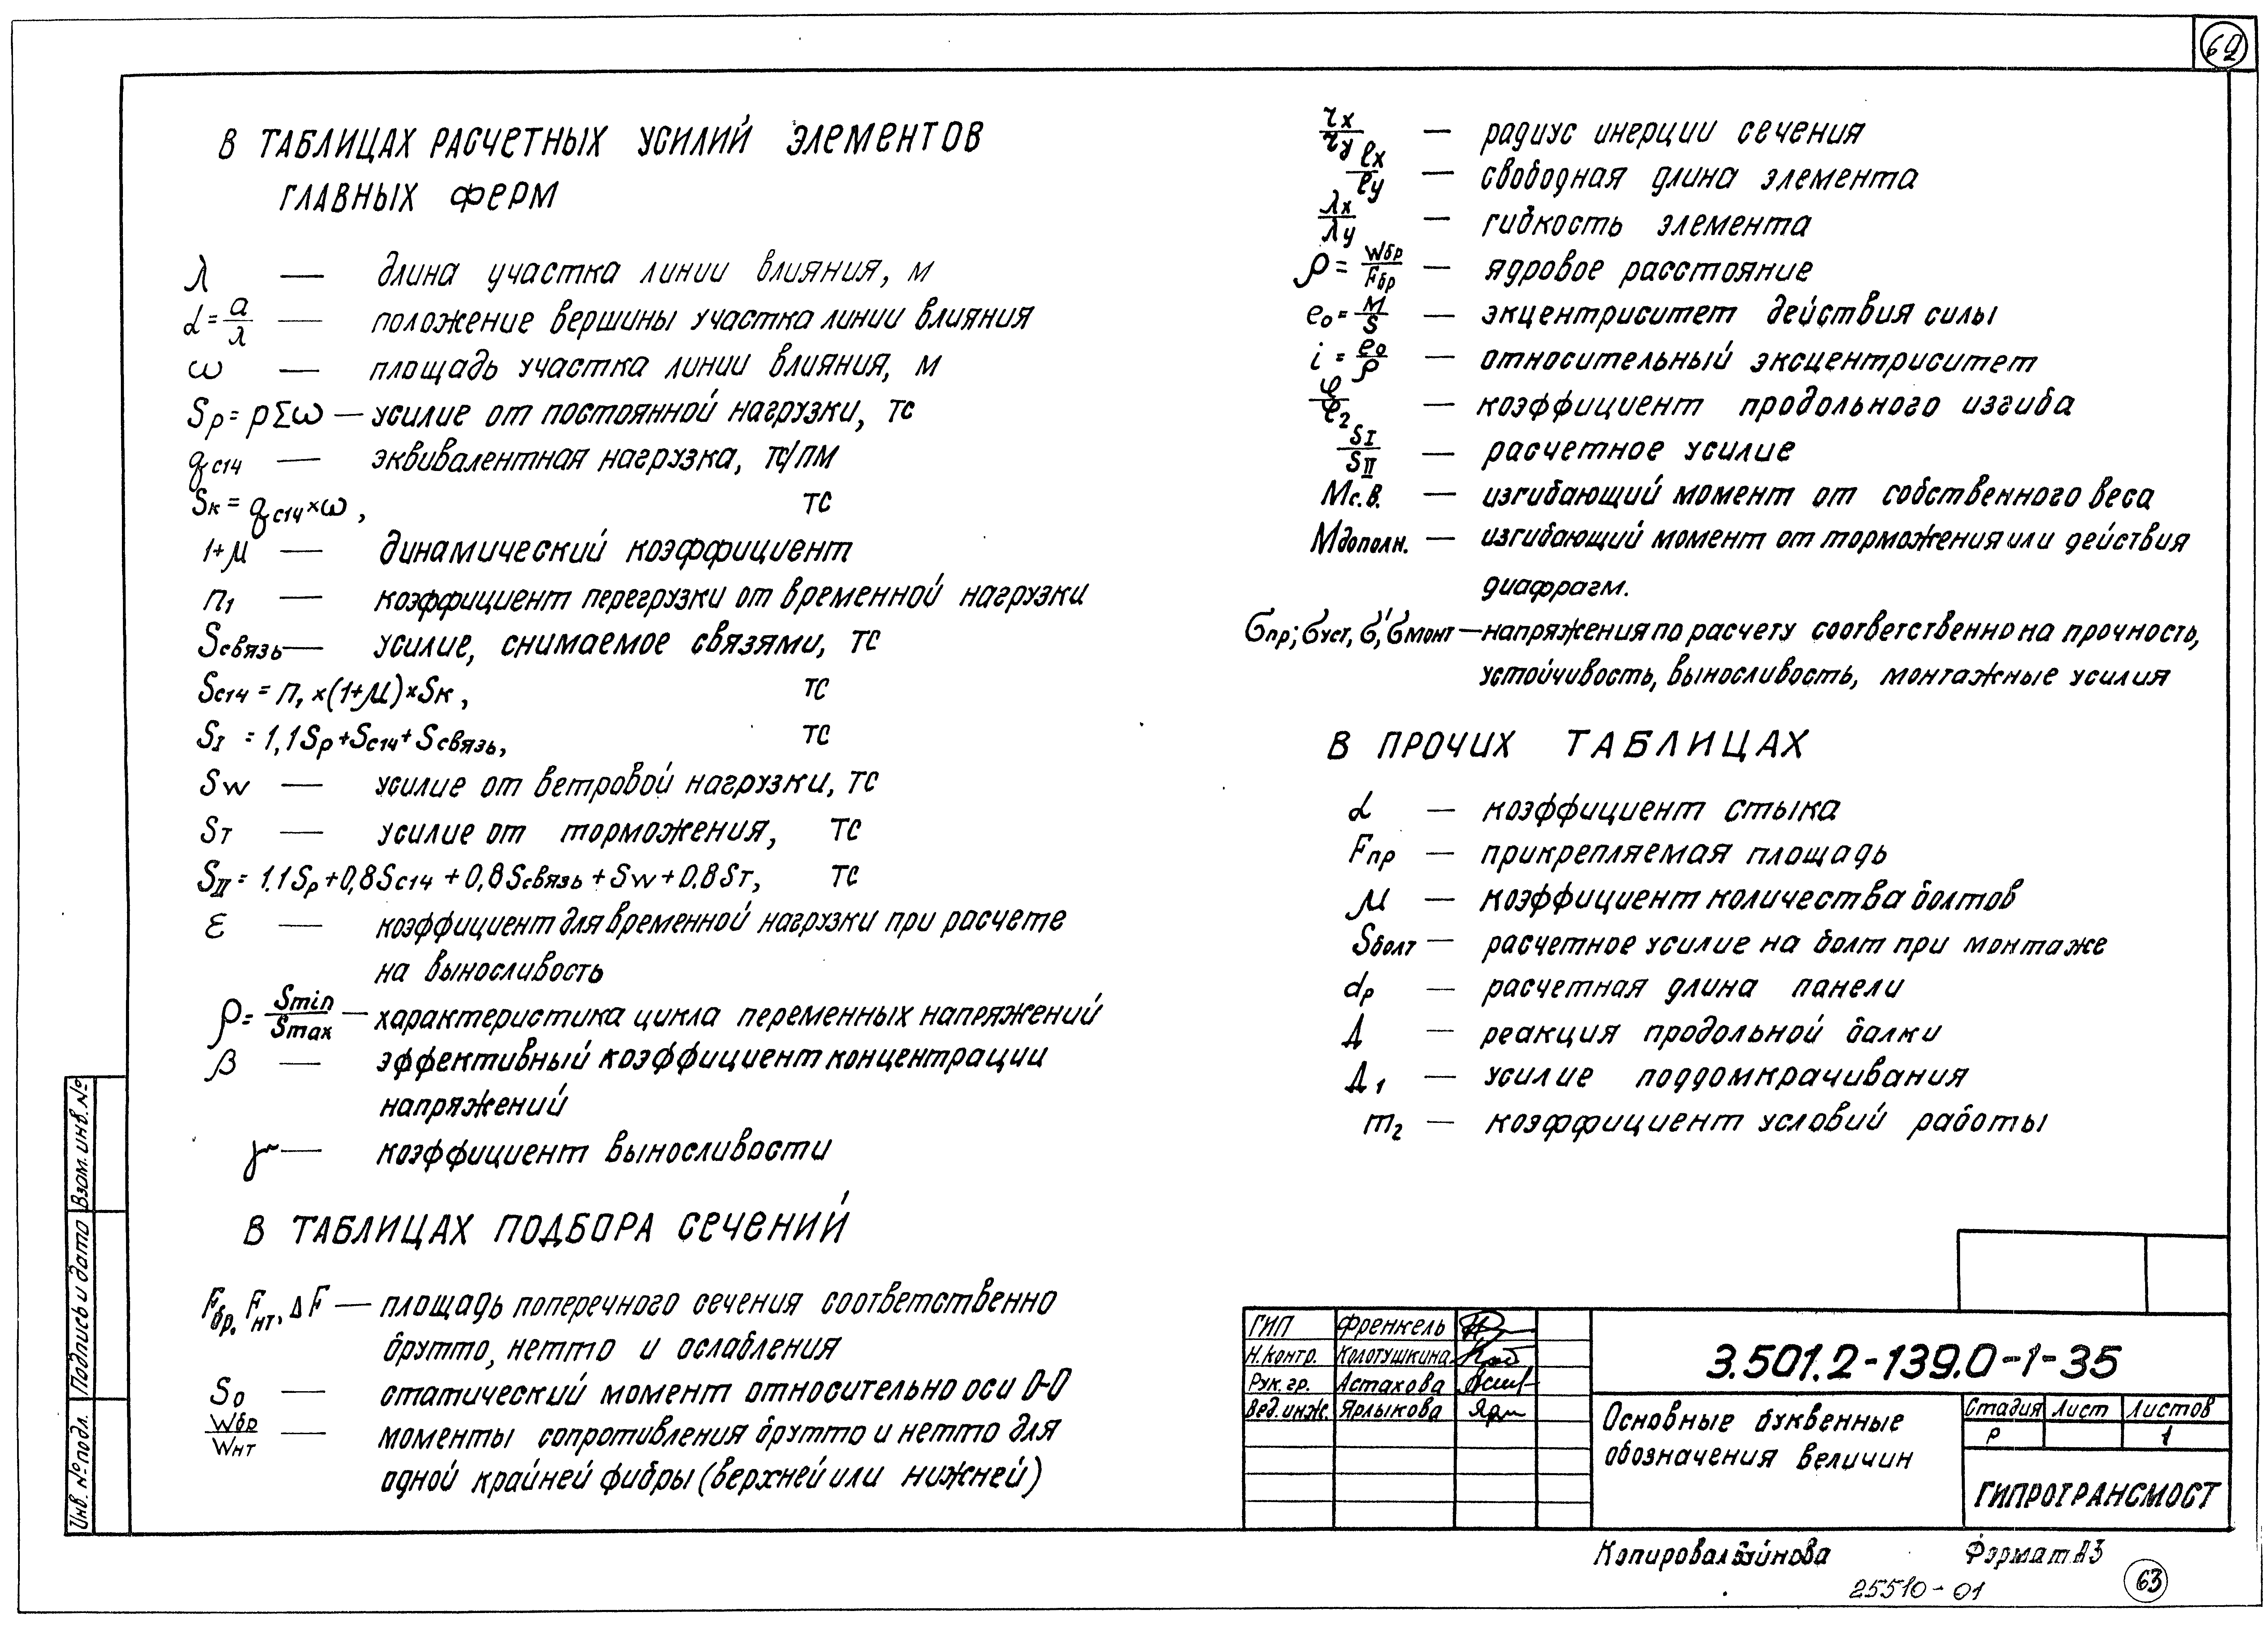 62
В ТАБЛИЦАХ РАСЧЕТНЫХ УСИЛИЙ ЭЛЕМЕНТОВ
ГЛАВНЫХ ФЕРМ
λ — длина участка линии влияния, м
α = a/λ — положение вершины участка линии влияния
ω — площадь участка линии влияния, м
Sp = pΣω — усилие от постоянной нагрузки, тс
qс14 — эквивалентная нагрузка, тс/пм
Sк = qс14 × ω, тс
1+μ — динамический коэффициент
п1 — коэффициент перегрузки от временной нагрузки
Sсвязь — усилие, снимаемое связями, тс
Sс14 = п1 × (1+μ) × Sк, тс
SI = 1,1Sp + Sс14 + Sсвязь, тс
Sw — усилие от ветровой нагрузки, тс
Sт — усилие от торможения, тс
SII = 1.1Sp + 0,8Sс14 + 0,8Sсвязь + Sw + 0.8Sт, тс
ε — коэффициент для временной нагрузки при расчете
на выносливость
ρ = Smin/Smax — характеристика цикла переменных напряжений
β — эффективный коэффициент концентрации
напряжений
γ — коэффициент выносливости
В ТАБЛИЦАХ ПОДБОРА СЕЧЕНИЙ
Fбр, Fнт, ΔF — площадь поперечного сечения соответственно
брутто, нетто и ослабления
S0 — статический момент относительно оси 0-0
Wбр/Wнт — моменты сопротивления брутто и нетто для
одной крайней фибры (верхней или нижней)
rx/ry — радиус инерции сечения
ℓx/ℓy — свободная длина элемента
λx/λy — гибкость элемента
ρ = Wбр/Fбр — ядровое расстояние
e0 = M/S — экцентриситет действия силы
i = e0/ρ — относительный эксцентриситет
φ/φ2 — коэффициент продольного изгиба
SI/SII — расчетное усилие
Мс.в. — изгибающий момент от собственного веса
Мдополн. — изгибающий момент от торможения или действия
диафрагм.
σпр; σуст, σ', σмонт — напряжения по расчету соответственно на прочность,
устойчивость, выносливость, монтажные усилия
В ПРОЧИХ ТАБЛИЦАХ
α — коэффициент стыка
Fпр — прикрепляемая площадь
μ — коэффициент количества болтов
Sболт — расчетное усилие на болт при монтаже
dp — расчетная длина панели
Д — реакция продольной балки
Д1 — усилие поддомкрачивания
m2 — коэффициент условий работы
Взам. инв. №
Подпись и дата
Инв. № подл.
ГИП Френкель
Н.контр. Колотушкина
Рук. гр. Астахова
Вед. инж. Ярлыкова
3.501.2-139.0-1-35
Основные буквенные
обозначения величин
Стадия Лист Листов
Р 1
ГИПРОТРАНСМОСТ
Копировал Формат А3
25510-01
63